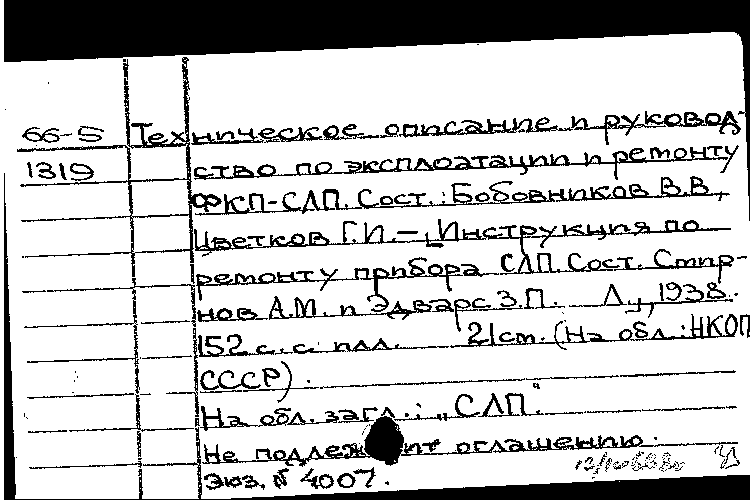 66-5 Техническое описание и руковод-
1319 ство по эксплоатации и ремонту
ФКП-СЛП. Сост.: Бобовников В.В.,
Цветков Г.И.–„Инструкция по
ремонту прибора СЛП. Сост. Смир-
нов А.М. и Эдварс З.П. Л., 1938.
152 с. с. илл. 21 см. (На обл.: НКОП
СССР).
На обл. загл.: „СЛП."
Не подлежит оглашению.
Экз. № 4007.